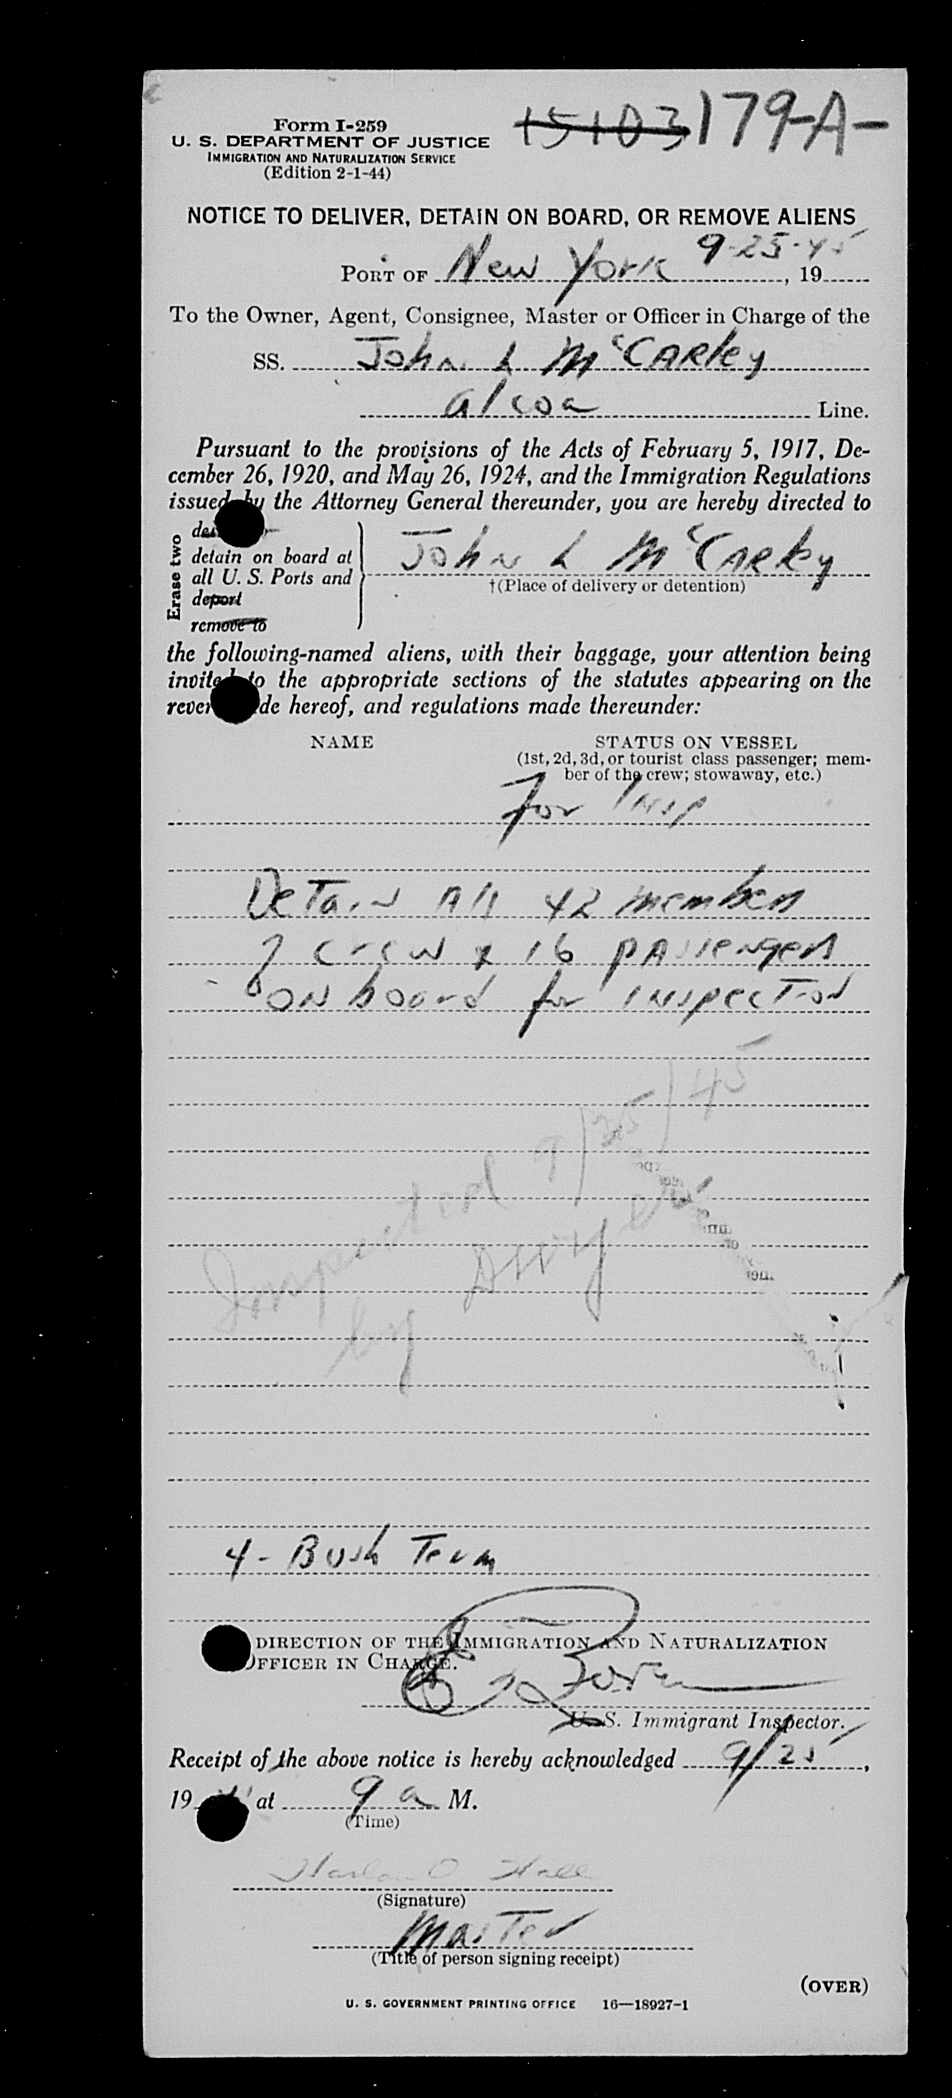 Form I-259
15103 179-A-
U. S. DEPARTMENT OF JUSTICE
IMMIGRATION AND NATURALIZATION SERVICE
(Edition 2-1-44)
NOTICE TO DELIVER, DETAIN ON BOARD, OR REMOVE ALIENS
PORT OF New York 9-25-45, 19
To the Owner, Agent, Consignee, Master or Officer in Charge of the
SS. John L McCARley
alcoa Line.
Pursuant to the provisions of the Acts of February 5, 1917, De-
cember 26, 1920, and May 26, 1924, and the Immigration Regulations
issued by the Attorney General thereunder, you are hereby directed to
Erase two
detain on board at
all U. S. Ports and
deport
remove to
John L McCARley
†(Place of delivery or detention)
the following-named aliens, with their baggage, your attention being
invited to the appropriate sections of the statutes appearing on the
reverse side hereof, and regulations made thereunder:
NAME STATUS ON VESSEL
(1st, 2d, 3d, or tourist class passenger; mem-
ber of the crew; stowaway, etc.)
For Insp
DeTain All 42 members
of crew & 16 passengers
on board for inspection
Inspected 9/25/45
by Dwyer
4 - Bush Term
DIRECTION OF THE IMMIGRATION AND NATURALIZATION
OFFICER IN CHARGE.
U. S. Immigrant Inspector.
Receipt of the above notice is hereby acknowledged 9/25,
19 at 9 a M.
(Time)
Harlan O Hall
(Signature)
Master
(Title of person signing receipt)
(OVER)
U. S. GOVERNMENT PRINTING OFFICE 16—18927-1